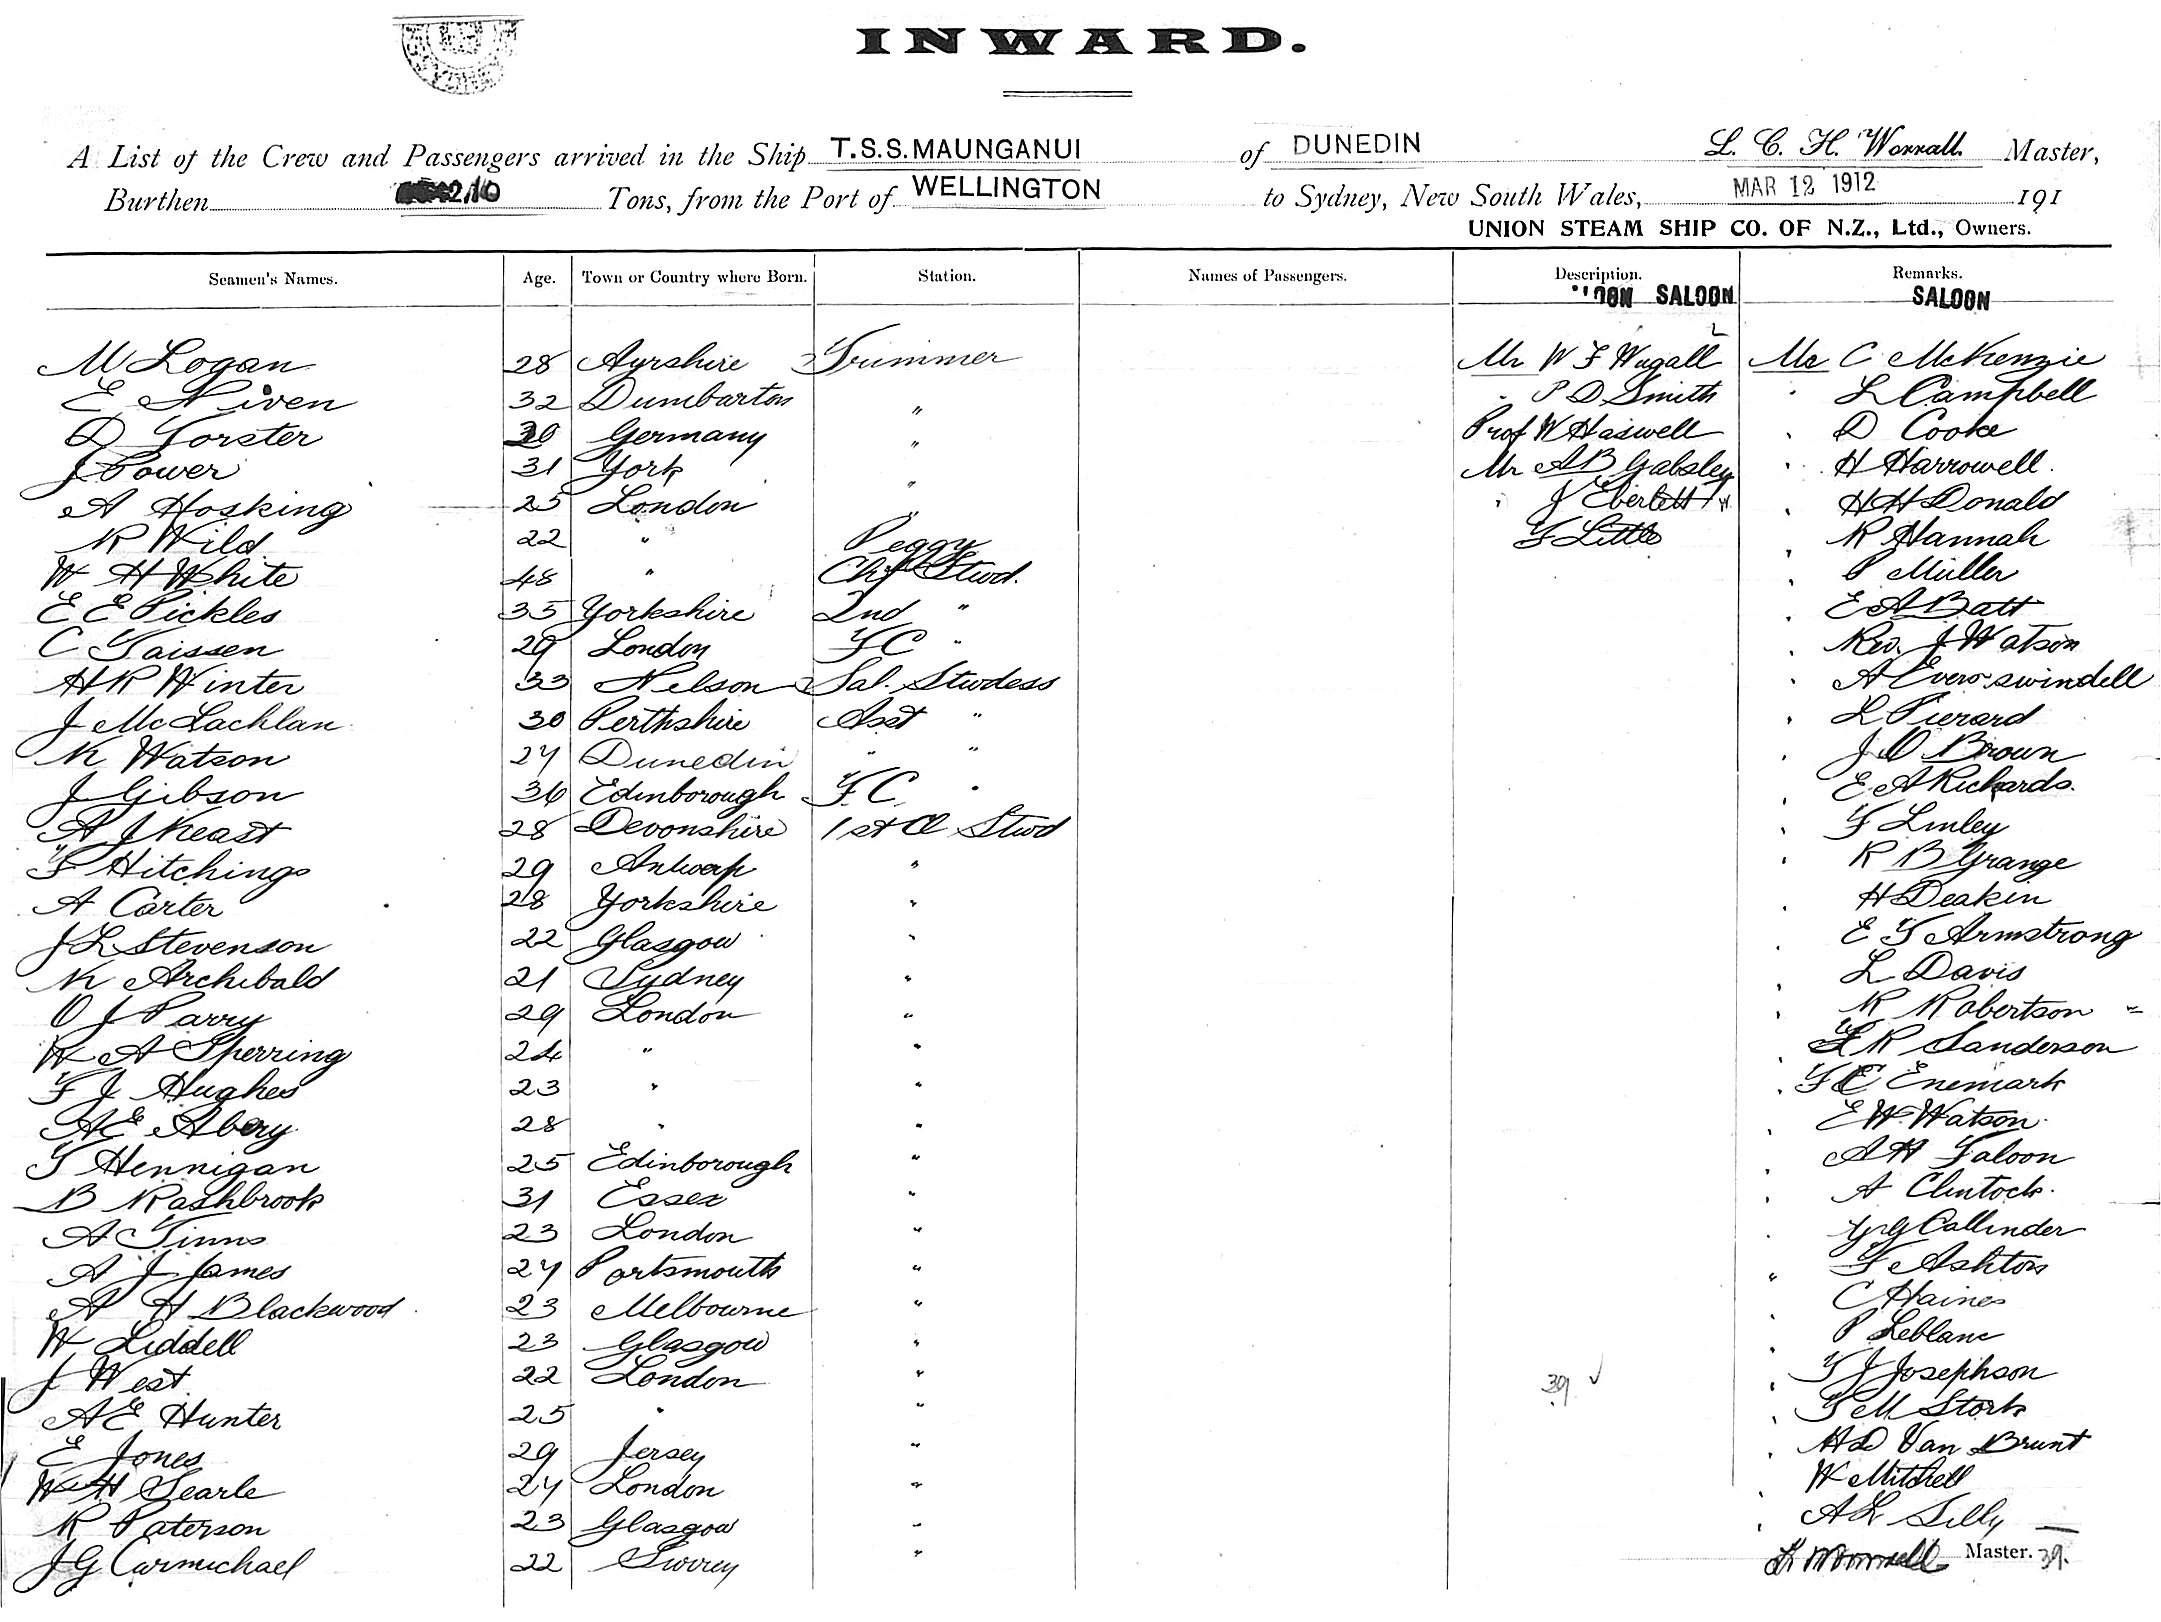 INWARD.
A List of the Crew and Passengers arrived in the Ship T.S.S. MAUNGANUI of DUNEDIN L. C. H. Worrall Master,
Burthen Tons, from the Port of WELLINGTON to Sydney, New South Wales, MAR 12 1912 191
UNION STEAM SHIP CO. OF N.Z., Ltd., Owners.
Seamen's Names. Age. Town or Country where Born. Station. Names of Passengers. Description. Remarks.
SALOON SALOON
M Logan 28 Ayrshire Trimmer Mr W F Wugall Mr C McKenzie
E Niven 32 Dumbarton " " P D Smith " L Campbell
D Forster 30 Germany " Prof W Haswell " D Cooke
J Power 31 York " Mr A B Gabsley " H Harrowell
A Hosking 25 London " " J Eberlett " H H Donald
R Wild 22 " Peggy F Little " R Hannah
W H White 48 " Chf Stwd. " P Müller
E E Pickles 35 Yorkshire 2nd " " E A Batt
C Taissen 29 London F C " " Rev. J Watson
H R Winter 33 Nelson Sal. Stwdess " A Evers-swindell
J McLachlan 30 Perthshire Asst " " L Pierard
N Watson 27 Dunedin " " J O Brown
J Gibson 36 Edinborough F.C. " " E A Richards.
A J Keast 28 Devonshire 1st Cl Stwd " F Linley
F Hitchings 29 Antwerp " " R B Grange
A Carter 28 Yorkshire " " H Deakin
J L Stevenson 22 Glasgow " " E T Armstrong
N Archibald 21 Sydney " " L Davis
O J Parry 29 London " " R Robertson
W A Sperring 24 " " " R Sanderson
F J Hughes 23 " " " F C Enemark
A E Abery 28 " " " E W Watson
T Hennigan 25 Edinborough " " A H Faloon
B Rashbrook 31 Essex " " A Clintock.
A Tinns 23 London " " G Callinder
A J James 27 Portsmouth " " F Ashton
A H Blackwood 23 Melbourne " " C Haines
W Liddell 23 Glasgow " " P Leblanc
J West 22 London " 39 " T J Josephson
A E Hunter 25 " " " T M Stork
E Jones 29 Jersey " " H D Van Brunt
W H Searle 27 London " " W Mitchell
R Paterson 23 Glasgow " " A L Silly
J G Carmichael 22 Surrey " Worrall Master. 39.